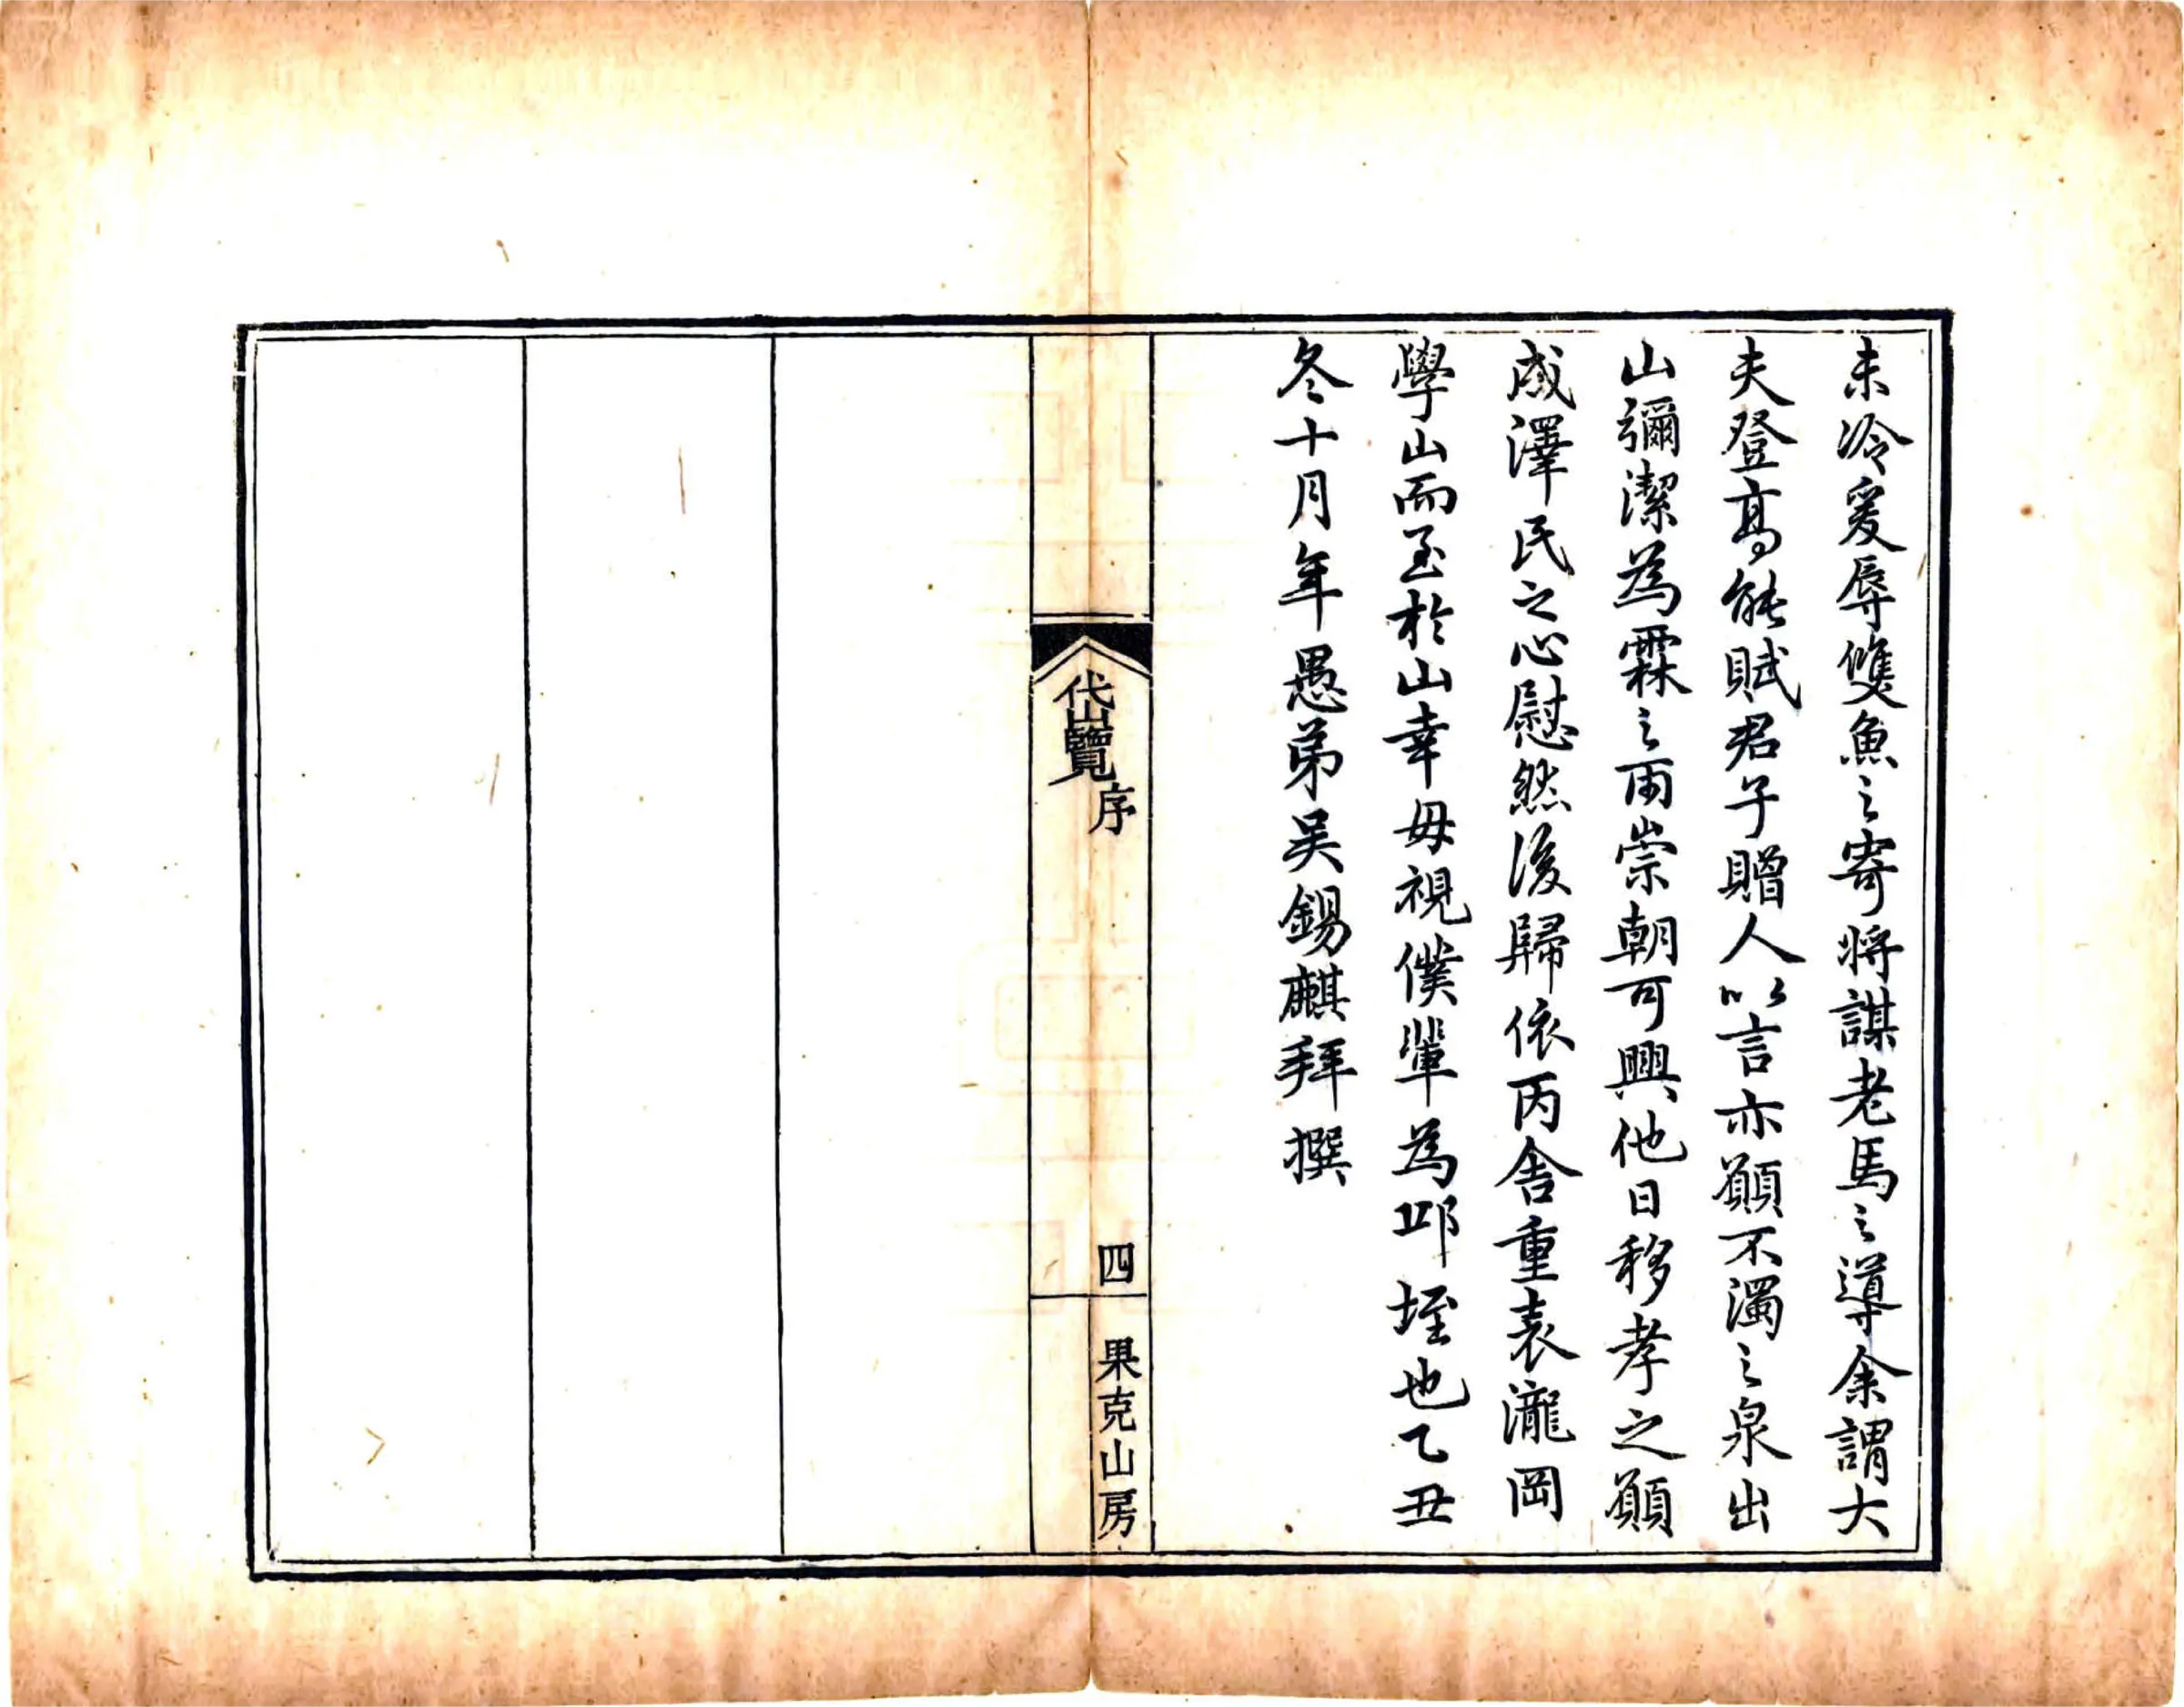 未冷爰辱雙魚之寄將謀老馬之導余謂大
夫登高能賦君子贈人以言亦願不濁之泉出
山彌潔為霖之雨崇朝可興他日移孝之願
成澤民之心慰然後歸依丙舍重表瀧岡
學山而至於山幸毋視僕輩為邱垤也乙丑
冬十月年愚弟吴錫麒拜撰
岱覽序
四
果克山房